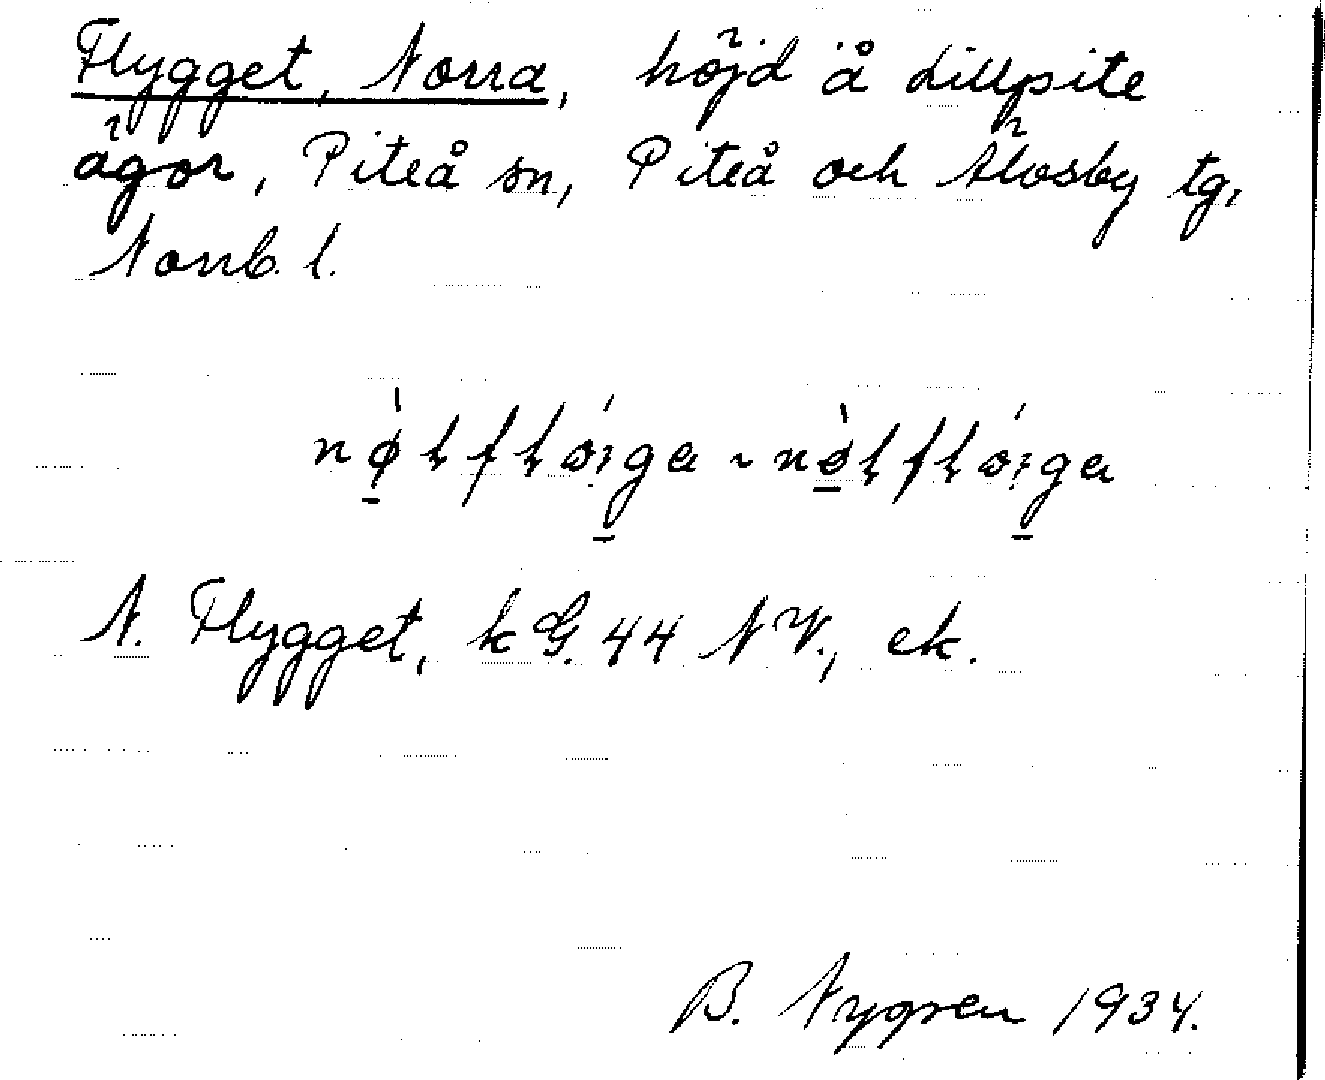 Flygget, Norra, höjd å Lillpite
ägor, Piteå sn, Piteå och Älvsby tg,
Norrb. l.
N. Flygget, k G. 44 NV., ek.
B. Nygren 1934.